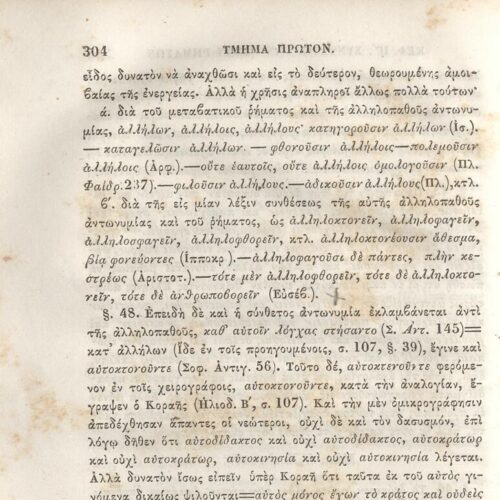 304 ΤΜΗΜΑ ΠΡΩΤΟΝ.
εἶδος δυνατὸν νὰ ἀναχθῶσι καὶ εἰς τὸ δεύτερον, θεωρουμένης ἀμοι-
βαίας τῆς ἐνεργείας. Ἀλλὰ ἡ χρῆσις ἀναπληροῖ ἄλλως πολλὰ τούτων·
ά. διὰ τοῦ μεταβατικοῦ ῥήματος καὶ τῆς ἀλληλοπαθοῦς ἀντωνυ-
μίας, ἀλλήλων, ἀλλήλοις, ἀλλήλους· κατηγοροῦσιν ἀλλήλων (Ἰσ.).
— καταγελῶσιν ἀλλήλων. — φθονοῦσιν ἀλλήλοις—πολεμοῦσιν
ἀλλήλοις (Ἀρφ.).—οὔτε ἑαυτοῖς, οὔτε ἀλλήλοις ὁμολογοῦσιν (Πλ.
Φαῖδρ. 237).—φιλοῦσιν ἀλλήλους.—ἀδικοῦσιν ἀλλήλους(Πλ.),κτλ.
β΄. διὰ τῆς εἰς μίαν λέξιν συνθέσεως τῆς αὐτῆς ἀλληλοπαθοῦς
ἀντωνυμίας καὶ τοῦ ῥήματος, ὡς ἀλληλοκτονεῖν, ἀλληλοφαγεῖν,
ἀλληλοσφαγεῖν, ἀλληλοφθορεῖν, κτλ. ἀλληλοκτονέουσιν ἄθεσμα,
βίᾳ φονεύοντες (Ἱπποκρ.).—ἀλληλοφαγοῦσι δὲ πάντες, πλὴν κε-
στρέως (Ἀριστοτ.).—τότε μὲν ἀλληλοφθορεῖν, τότε δὲ ἀλληλοκτο-
νεῖν, τότε δὲ ἀνθρωποβορεῖν (Εὐσέβ.).
§. 48. Ἐπειδὴ δὲ καὶ ἡ σύνθετος ἀντωνυμία ἐκλαμβάνεται ἀντὶ
τῆς ἀλληλοπαθοῦς, καθ' αὑτοῖν λόγχας στήσαντο (Σ. Ἀντ. 145)=
κατ' ἀλλήλων (Ἴδε ἐν τοῖς προηγουμένοις, σ. 107, §. 39), ἔγινε καὶ
αὑτοκτονοῦντε (Σοφ. Ἀντιγ. 56). Τοῦτο δέ, αὐτοκτενοῦντε φερόμε-
νον ἐν τοῖς χειρογράφοις, αὑτοκτονοῦντε, κατὰ τὴν ἀναλογίαν, ἔ-
γραψεν ὁ Κοραῆς (Ἡλιοδ. Β΄, σ. 107). Καὶ τὴν μὲν ὀμικρογράφησιν
ἀπεδέχθησαν ἅπαντες οἱ νεώτεροι, οὐχὶ δὲ καὶ τὸν δασυσμόν, ἐπὶ
λόγῳ δῆθεν ὅτι αὐτοδίδακτος καὶ οὐχὶ αὑτοδίδακτος, αὐτοκράτωρ
καὶ οὐχὶ αὑτοκράτωρ, αὐτοκινησία καὶ οὐχὶ αὑτοκινησία λέγεται.
Ἀλλὰ δυνατὸν ἴσως εἰπεῖν ὑπὲρ Κοραῆ ὅτι ταῦτα ἐκ τοῦ αὐτὸς γι-
νόμενα δικαίως ψιλοῦνται=αὐτὸς μόνος ἔχων τὸ κράτος καὶ οὐδεὶς